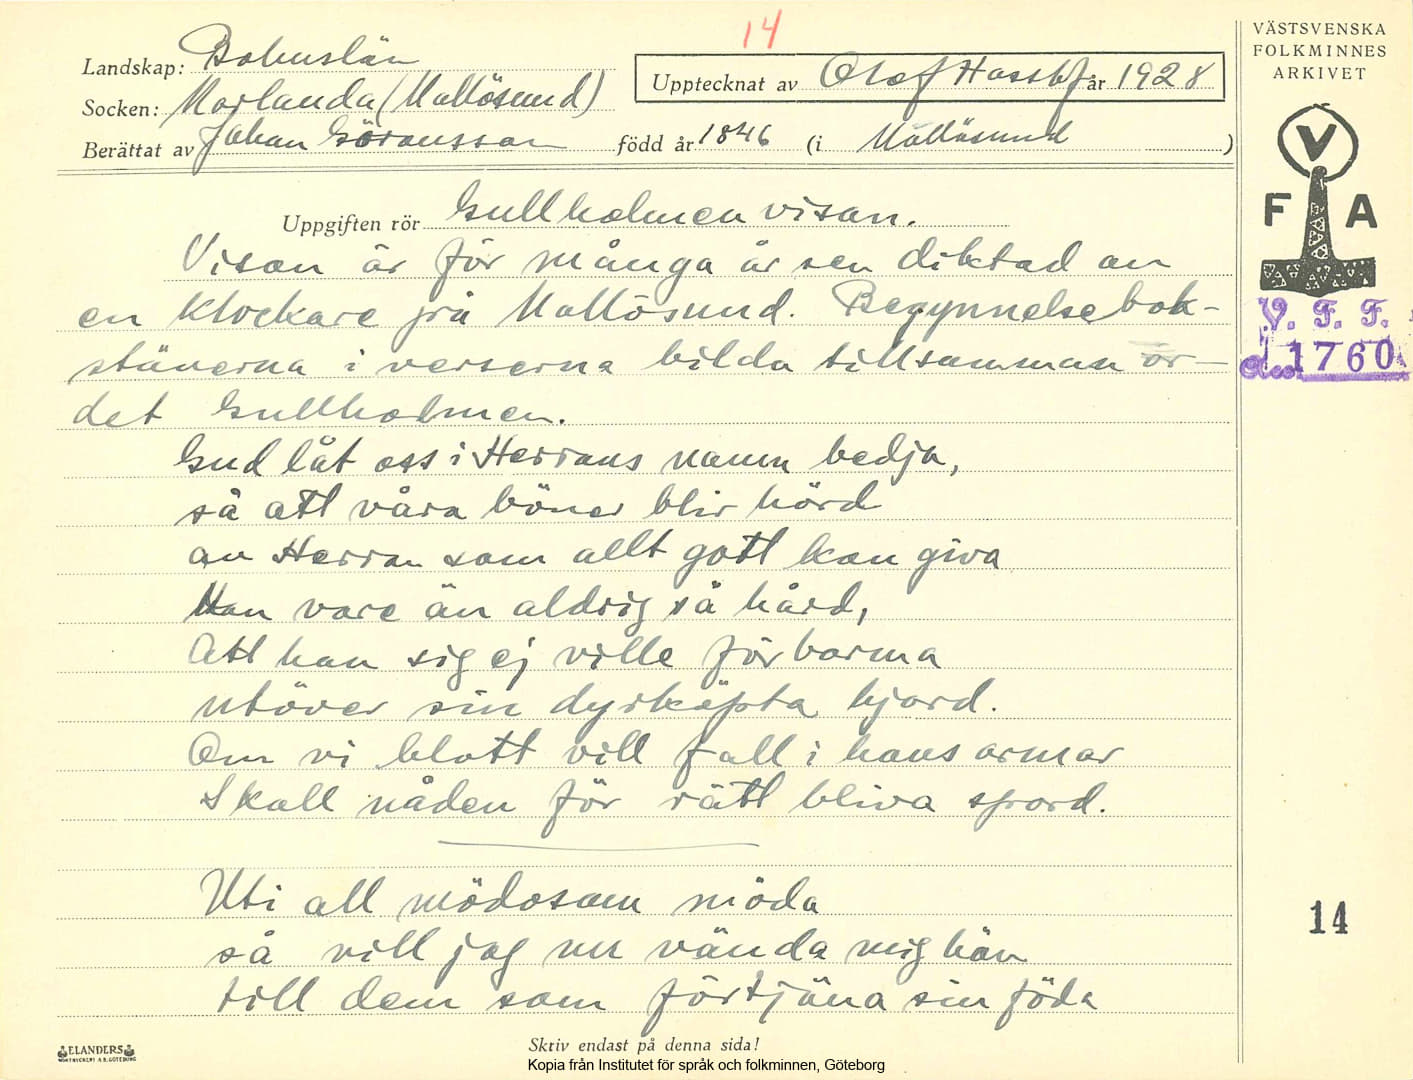 14
Landskap: Bohuslän
Socken: Morlanda (Mollösund)
Berättat av Johan Göransson född år 1846 (i Mollösund )
Upptecknat av Olof Hasslöf år 1928
VÄSTSVENSKA
FOLKMINNES
ARKIVET
V
F A
V. F. F.
1760
Uppgiften rör Gullholmen visan.
Visan är för många år sen diktad av
en klockare frå Mollösund. Begynnelsebok-
stäverna i verserna bilda tillsamman or-
det Gullholmen.
Gud låt oss i Herrans namn bedja,
så att våra böner blir hörd
av Herran som allt gott kan giva
Han vare än aldrig så hård,
Att han sig ej ville förbarma
utöver sin dyrköpta hjord.
Om vi blott vill fall i hans armar
Skall nåden för rätt bliva spord.
Uti all mödosam möda
så vill jag nu vända mig hän
till dem som förtjäna sin föda
14
ELANDERS
BOKTRYCKERI A.B. GÖTEBORG
Skriv endast på denna sida!
Kopia från Institutet för språk och folkminnen, Göteborg